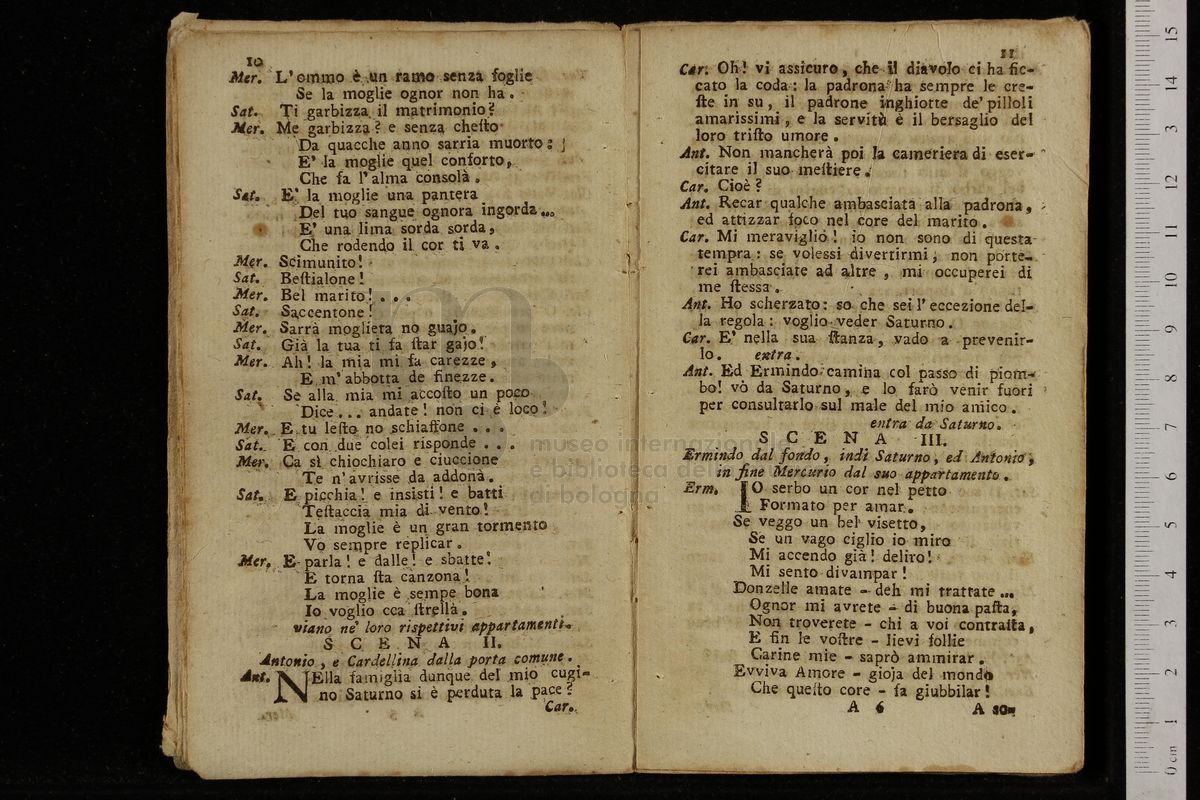 10
Mer. L'ommo è un ramo senza foglie
Se la moglie ognor non ha.
Sat. Ti garbizza il matrimonio?
Mer. Me garbizza? e senza chesto
Da quacche anno sarria muorto;
E' la moglie quel conforto,
Che fa l'alma consolà.
Sat. E' la moglie una pantera
Del tuo sangue ognora ingorda...
E' una lima sorda sorda,
Che rodendo il cor ti va.
Mer. Scimunito!
Sat. Bestialone!
Mer. Bel marito! . . .
Sat. Saccentone!
Mer. Sarrà moglieta no guajo.
Sat. Già la tua ti fa star gajo!
Mer. Ah! la mia mi fa carezze,
E m'abbotta de finezze.
Sat. Se alla mia mi accosto un poco
Dice... andate! non ci è loco!
Mer. E tu lesto no schiaffone . . .
Sat. E con due colei risponde . . .
Mer. Ca sì chiochiaro e ciuccione
Te n'avrisse da addonà.
Sat. E picchia! e insisti! e batti
Testaccia mia di vento!
La moglie è un gran tormento
Vo sempre replicar.
Mer. E parla! e dalle! e sbatte!
E torna sta canzona!
La moglie è sempe bona
Io voglio cca strellà.
viano ne' loro rispettivi appartamenti.
SCENA II.
Antonio, e Cardellina dalla porta comune.
Ant. NElla famiglia dunque del mio cugi-
no Saturno si è perduta la pace?
Car.
11
Car. Oh! vi assicuro, che il diavolo ci ha fic-
cato la coda: la padrona ha sempre le cre-
ste in su, il padrone inghiotte de' pilloli
amarissimi, e la servitù è il bersaglio del
loro tristo umore.
Ant. Non mancherà poi la cameriera di eser-
citare il suo mestiere.
Car. Cioè?
Ant. Recar qualche ambasciata alla padrona,
ed attizzar foco nel core del marito.
Car. Mi meraviglio! io non sono di questa
tempra: se volessi divertirmi, non porte-
rei ambasciate ad altre, mi occuperei di
me stessa.
Ant. Ho scherzato: so che sei l'eccezione del-
la regola: voglio veder Saturno.
Car. E' nella sua stanza, vado a prevenir-
lo. entra.
Ant. Ed Ermindo camina col passo di piom-
bo! vò da Saturno, e lo farò venir fuori
per consultarlo sul male del mio amico.
entra da Saturno.
SCENA III.
Ermindo dal fondo, indi Saturno, ed Antonio,
in fine Mercurio dal suo appartamento.
Erm. IO serbo un cor nel petto
Formato per amar.
Se veggo un bel visetto,
Se un vago ciglio io miro
Mi accendo già! deliro!
Mi sento divampar!
Donzelle amate - deh mi trattate...
Ognor mi avrete - di buona pasta,
Non troverete - chi a voi contrasta,
E fin le vostre - lievi follie
Carine mie - saprò ammirar.
Evviva Amore - gioja del mondo
Che questo core - fa giubbilar!
A 6
museo internazionale
e biblioteca della
di bologna
0 cm 1 2 3 4 5 6 7 8 9 10 11 12 13 14 15